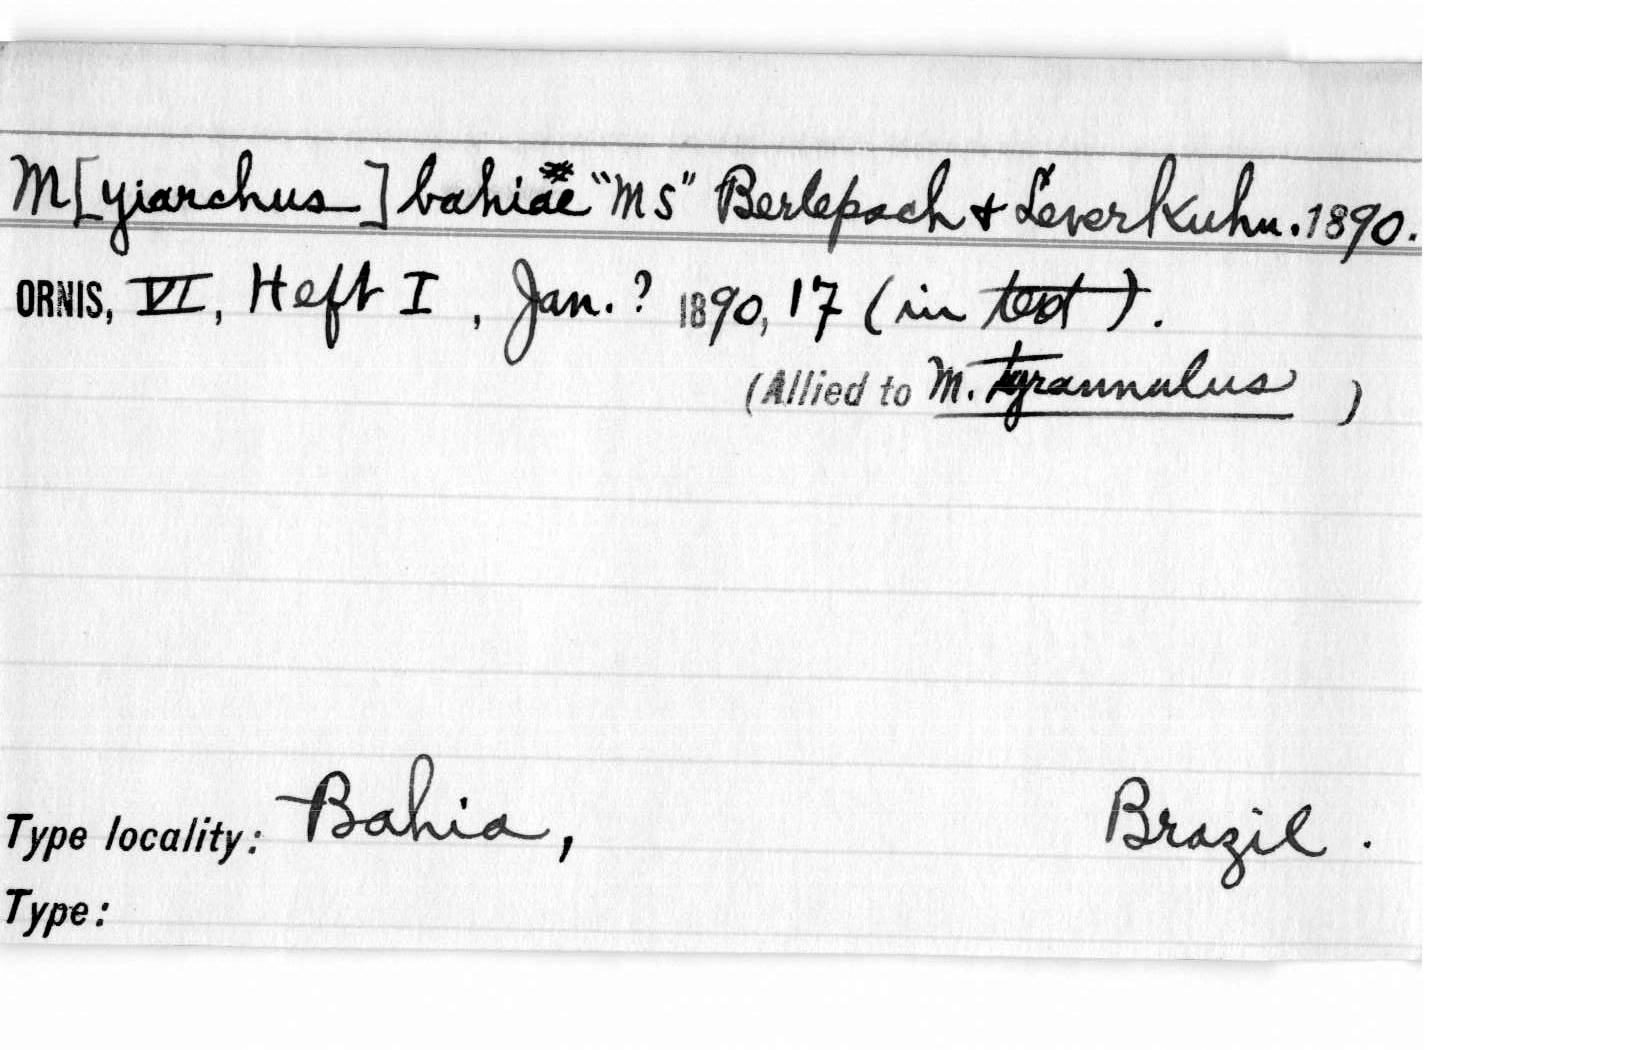 M[yiarchus] bahiae "MS" Berlepsch & Leverkuhn. 1890.
ORNIS, VI, Heft I, Jan. ? 1890, 17 (in text).
(Allied to M. tyrannulus )
Type locality: Bahia, Brazil.
Type: